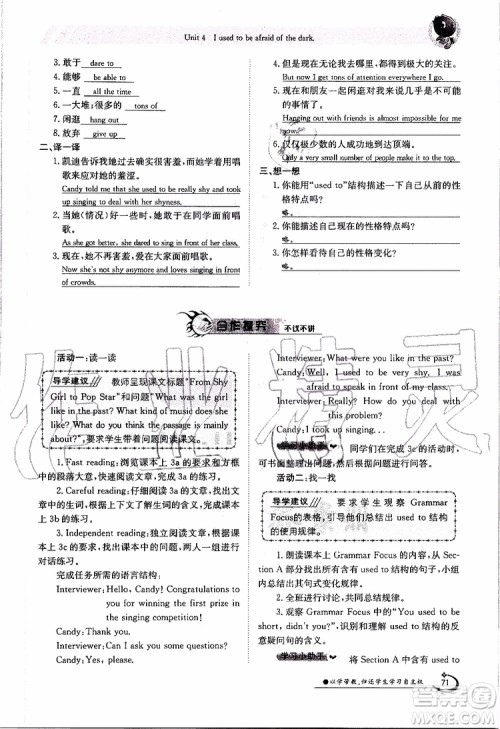 Unit 4 I used to be afraid of the dark.
3. 敢于 dare to
4. 能够 be able to
5. 一直 all the time
6. 一大堆;很多的 tons of
7. 闲逛 hang out
8. 放弃 give up
二、译一译
1. 凯迪告诉我过去她很害羞,并且开始用唱
歌来应对她的羞涩。
Candy told me that she used to be really shy and took
up singing to deal with her shyness.
2. 当她(情况)变好时,她敢于在同学面前唱
歌。
As she got better, she dared to sing in front of her class.
3. 现在她不再害羞了,并且喜欢在人群前唱
歌。
Now she's not shy anymore and loves singing in front
of crowds.
4. 但是现在无论我去哪都能得到很多关注。
But now I get tons of attention everywhere I go.
5. 现在和朋友一起闲逛对我来说几乎是不可
能的了。
Hanging out with friends is almost impossible for me
now.
6. 仅仅极少数的人成功达到顶端。
Only a very small number of people make it to the top.
三、想一想
1. 你能用“used to”结构描述一下自己从前的
性格特点吗?
略。
2. 你现在的性格特点呢?
略。
3. 你怎样看待自己的性格变化?
略。
合作探究 不议不讲
活动一:读一读
导学建议 教师呈现课文标题“From Shy
Girl to Pop Star”和问题“What kind of
star is she? What kind of music does she
like? What is the passage mainly
about?”,要求学生带着问题阅读课文。
1. Fast reading:浏览课本上 3a 的要求和方框
中的段落大意,快速阅读文章,完成 3a。
2. Careful reading:仔细阅读文章,完成课本
上 3b 的练习,写下文中生词的含义。
3. Independent reading:独立阅读文章,根据
3c 的要求,找出课本中的相关问题和答案,进行
对话练习。
完成任务所需的语言结构:
Interviewer: Hello, Candy! Congratulations to
you for winning the first prize in
the singing competition.
Candy: Thank you.
Interviewer: Can I ask you some questions?
Candy: Yes, of course.
Interviewer: What were you like when you
were younger?
Candy: Well, I used to be very shy. I was
afraid to speak in front of my class.
Interviewer: Really? How did you deal with
the problem?
Candy: I took up singing...
学习小助手 同学们在完成 3c 的活动时,
可以先整理出问题,然后在文中找出答案。
活动二:找一找
导学建议 要求学生观察 Grammar
Focus的表格,引导他们总结出 used to
的使用规律。
1. 朗读课本上 Grammar Focus 的句子。
2. 从 Section A 部分的课文中找出含有 used
to 结构的句子,小组总结其变化规律。
3. 观察 Grammar Focus 中的“You used to be
short, didn't you?”的结构,并总结出该结构的反
意疑问句的构成方式。
学习小助手 将 Section A 中含有 used to
以学管教,归还学生学习自主权
71
作业精灵